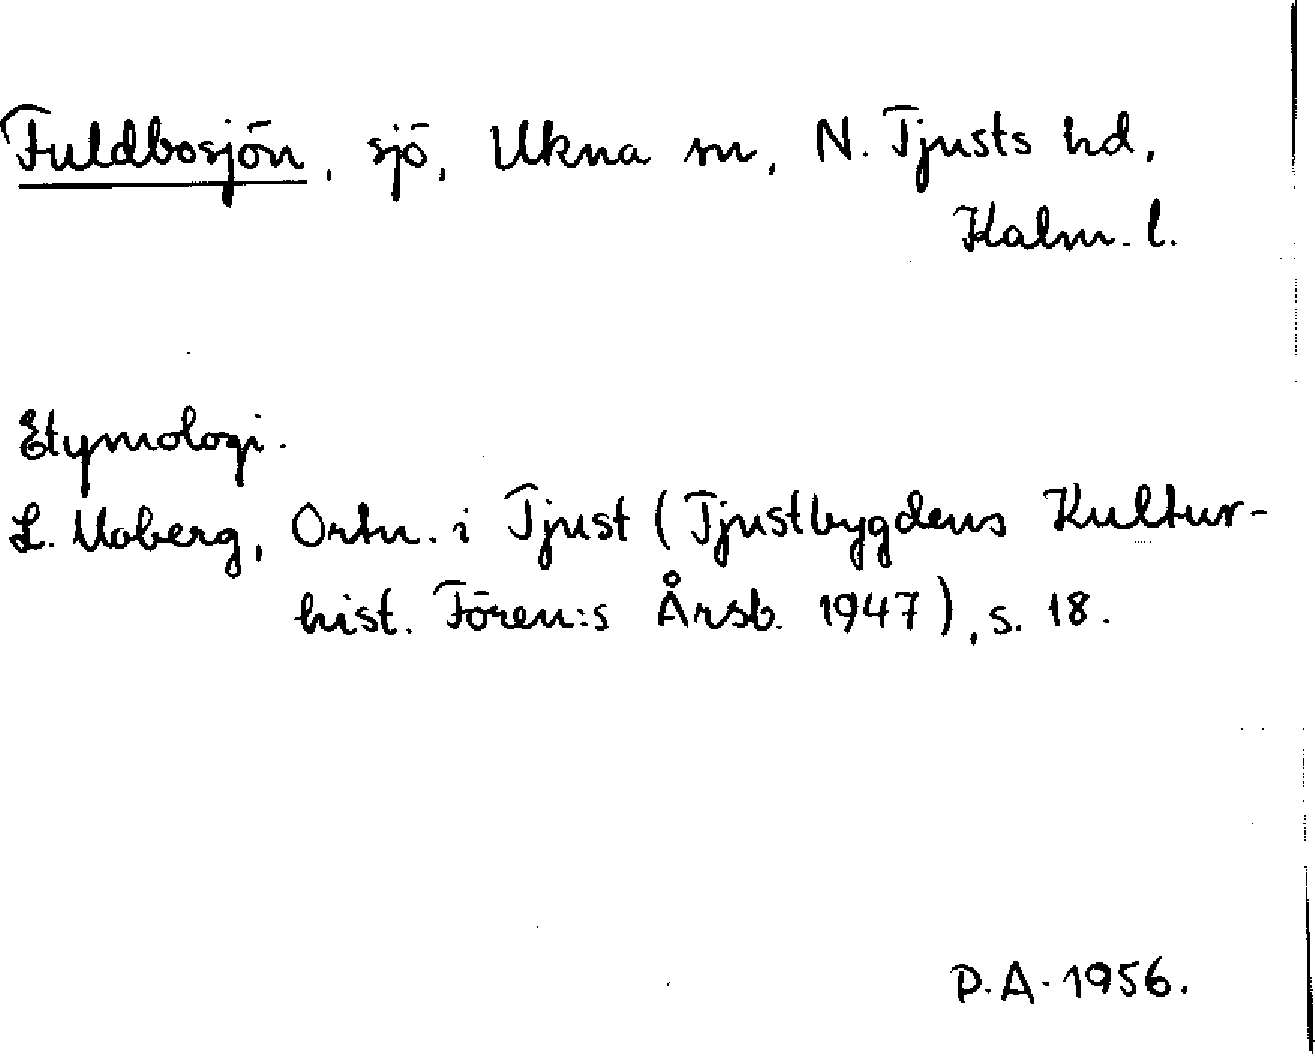 Fuldbosjön, sjö, Ukna sn, N. Tjusts hd,
Kalm. l.
Etymologi.
L. Moberg, Ortn. i Tjust (Tjustbygdens Kultur-
hist. Fören:s Årsb. 1947), s. 18.
P.A. 1956.